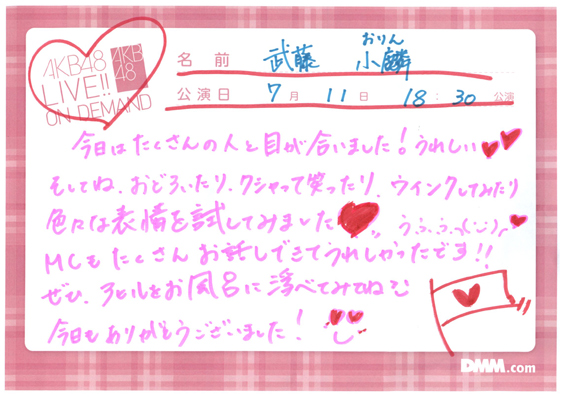 AKB48
LIVE!!
ON DEMAND
AKB
48
名前 武藤 小麟
おりん
公演日 7月 11日 18:30 公演
今日はたくさんの人と目が合いました!うれしい
そしてね、おどろいたり、クシャって笑ったり、ウインクしてみたり
色々な表情を試してみました うふふっ
MCもたくさんお話しできてうれしかったです!!
ぜひ、アヒルをお風呂に浮べてみてね
今日もありがとうございました!
DMM.com